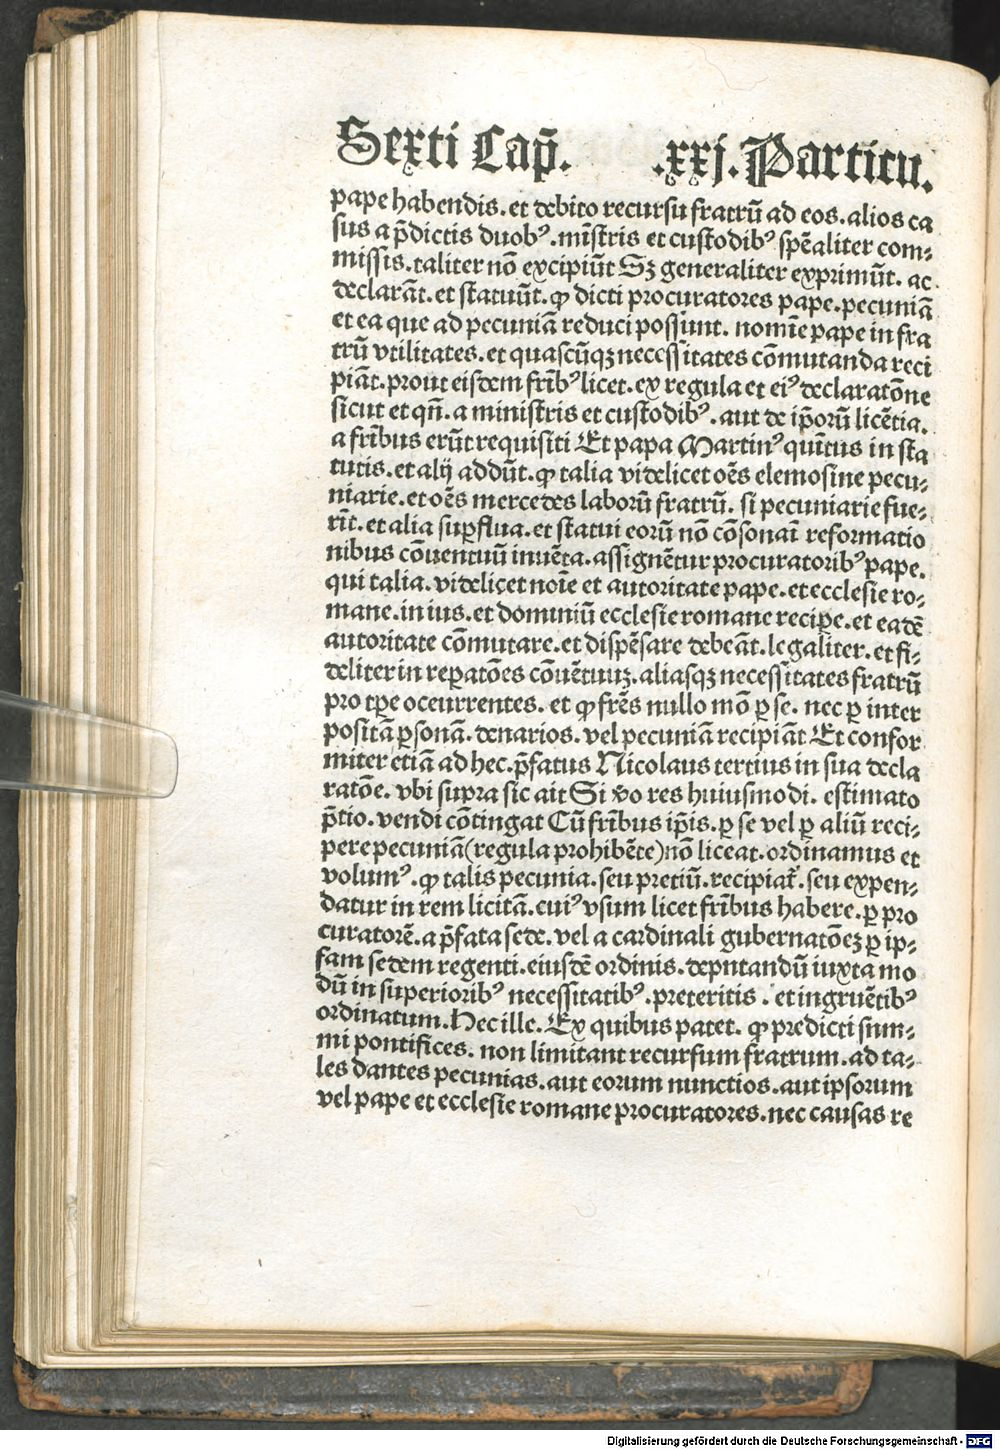 Sexti Cap̄. .xxj. Particu.
pape habendis. et debito recursu fratrū ad eos. alios ca
sus a p̄dictis duobꝰ. mīstris et custodibꝰ spēaliter com⸗
missis. taliter nō excipiūt Sꝫ generaliter exprimūt. ac
declarāt. et statuūt. ꝙ dicti procuratores pape. pecuniā
et ea que ad pecuniā reduci possunt. nomīe pape in fra
trū vtilitates. et quascūqꝫ necessitates cōmutanda reci
piāt. prout eisdem frībꝰ licet. ex regula et eiꝰ declaratōne
sicut et qn̄. a ministris et custodibꝰ. aut de ip̄orū licētia.
a frībus erūt requisiti Et papa Martinꝰ quītus in sta
tutis. et alij addūt. ꝙ talia videlicet oēs elemosine pecu⸗
niarie. et oēs mercedes laborū fratrū. si pecuniarie fue⸗
rīt. et alia suꝑflua. et statui eorū nō cōsonaī reformatio
nibus cōuentuū inuēta. assignētur procuratoribꝰ pape.
qui talia. videlicet noīe et autoritate pape. et ecclesie ro⸗
mane. in ius. et dominiū ecclesie romane reciꝑe. et eadē
autoritate cōmutare. et dispēsare debeāt. legaliter. et fi⸗
deliter in reꝑatōes cōuētuuꝫ. aliasqꝫ necessitates fratrū
pro tꝑe ocurrentes. et ꝙ frēs nullo mō ꝑ se. nec ꝑ inter
positā ꝑsonā. denarios. vel pecuniā recipiāt Et confor
miter etiā ad hec. p̄fatus Nicolaus tertius in sua decla
ratōe. vbi supra sic ait Si v̄o res huiusmodi. estimato
p̄tio. vendi cōtingat Cū frībus ip̄is. ꝑ se vel ꝑ aliū reci⸗
pere pecuniā (regula prohibēte) nō liceat. ordinamus et
volumꝰ. ꝙ talis pecunia. seu pretiū. recipiat᷑. seu expen⸗
datur in rem licitā. cuiꝰ vsum licet frībus habere. ꝑ pro
curatorē. a p̄fata sede. vel a cardinali gubernatōeꝫ ꝑ ip⸗
sam sedem regenti. eiusdē ordinis. deputandū iuxta mo
dū in superioribꝰ necessitatibꝰ. preteritis. et ingruētibꝰ
ordinatum. Hec ille. Ex quibus patet. ꝙ predicti sum⸗
mi pontifices. non limitant recursum fratrum. ad ta⸗
les dantes pecunias. aut eorum nunctios. aut ipsorum
vel pape et ecclesie romane procuratores. nec causas re
Digitalisierung gefördert durch die Deutsche Forschungsgemeinschaft - DFG